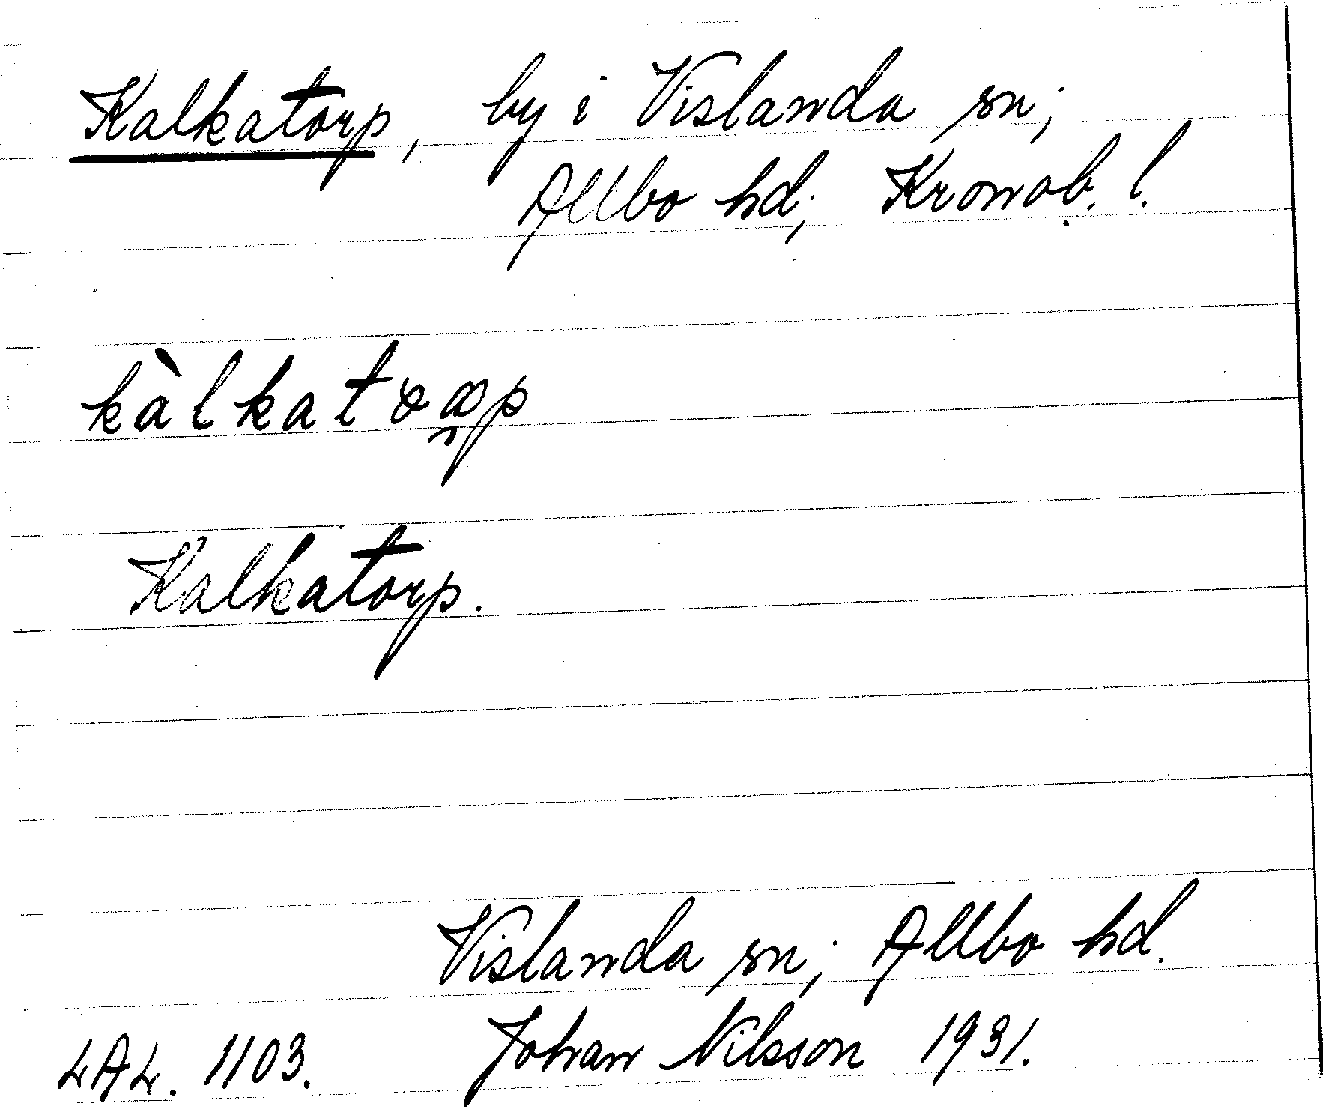 Kalkatorp, by i Vislanda sn;
Allbo hd; Kronob. l.
kàlkatoąp
Kalkatorp.
Vislanda sn; Allbo hd.
LAL. 1103. Johan Nilsson 1931.